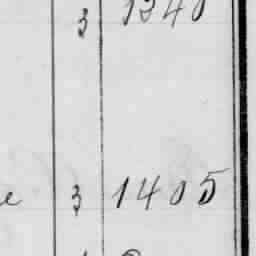 3 1340
e 3 1405